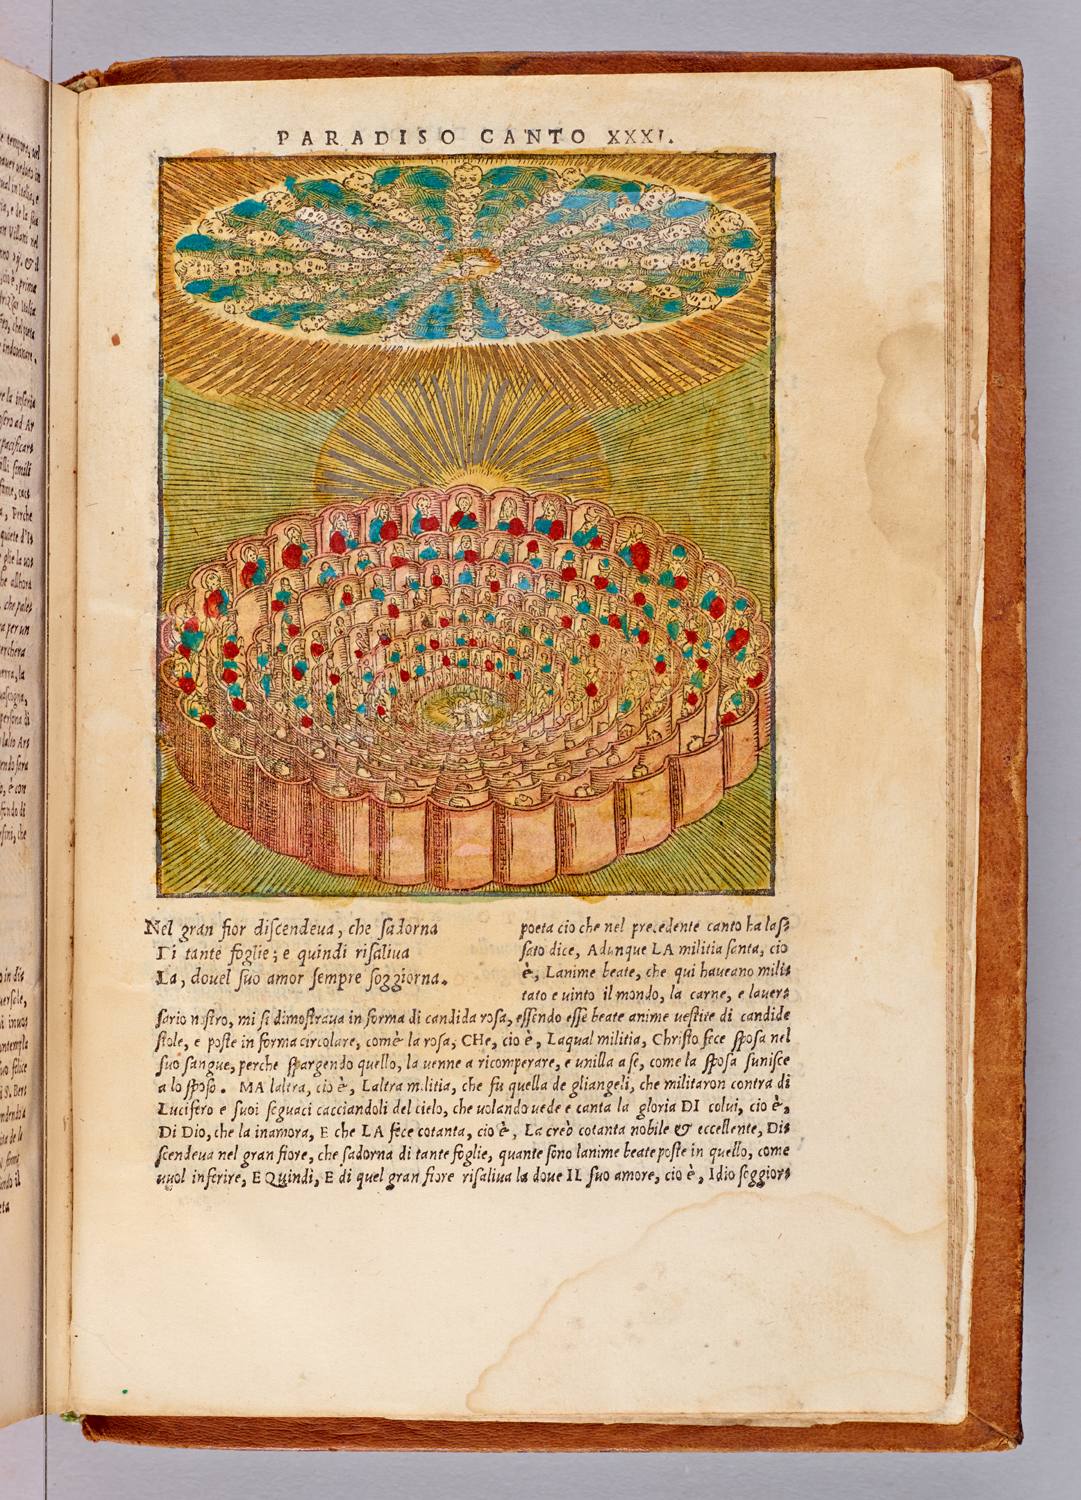 PARADISO CANTO XXXI.
Nel gran fior diſcendeua, che ſadorna
Di tante foglie; e quindi riſaliua
La, douel ſuo amor ſempre ſoggiorna.
poeta cio che nel precedente canto ha laſ⸗
ſato dice, Adunque LA militia ſanta, cio
è, Lanime beate, che qui haueano mili⸗
tato e uinto il mondo, la carne, e lauer⸗
ſario noſtro, mi ſi dimoſtraua in forma di candida roſa, eſſendo eſſe beate anime ueſtite di candide
ſtole, e poſte in forma circolare, comè la roſa, CHe, cio è, Laqual militia, Chriſto fece ſpoſa nel
ſuo ſangue, perche ſpargendo quello, la uenne a ricomperare, e unilla a ſe, come la ſpoſa ſuniſce
a lo ſpoſo. MA laltra, cio è, Laltra militia, che fu quella de gliangeli, che militaron contra di
Lucifero e ſuoi ſeguaci cacciandoli del cielo, che uolando uede e canta la gloria DI colui, cio è,
Di Dio, che la inamora, E che LA fece cotanta, cio è, La creò cotanta nobile & eccellente, Di⸗
ſcendeua nel gran fiore, che ſadorna di tante foglie, quante ſono lanime beate poſte in quello, come
uuol inferire, E Quindi, E di quel gran fiore riſaliua la doue IL ſuo amore, cio è, Idio ſeggior⸗